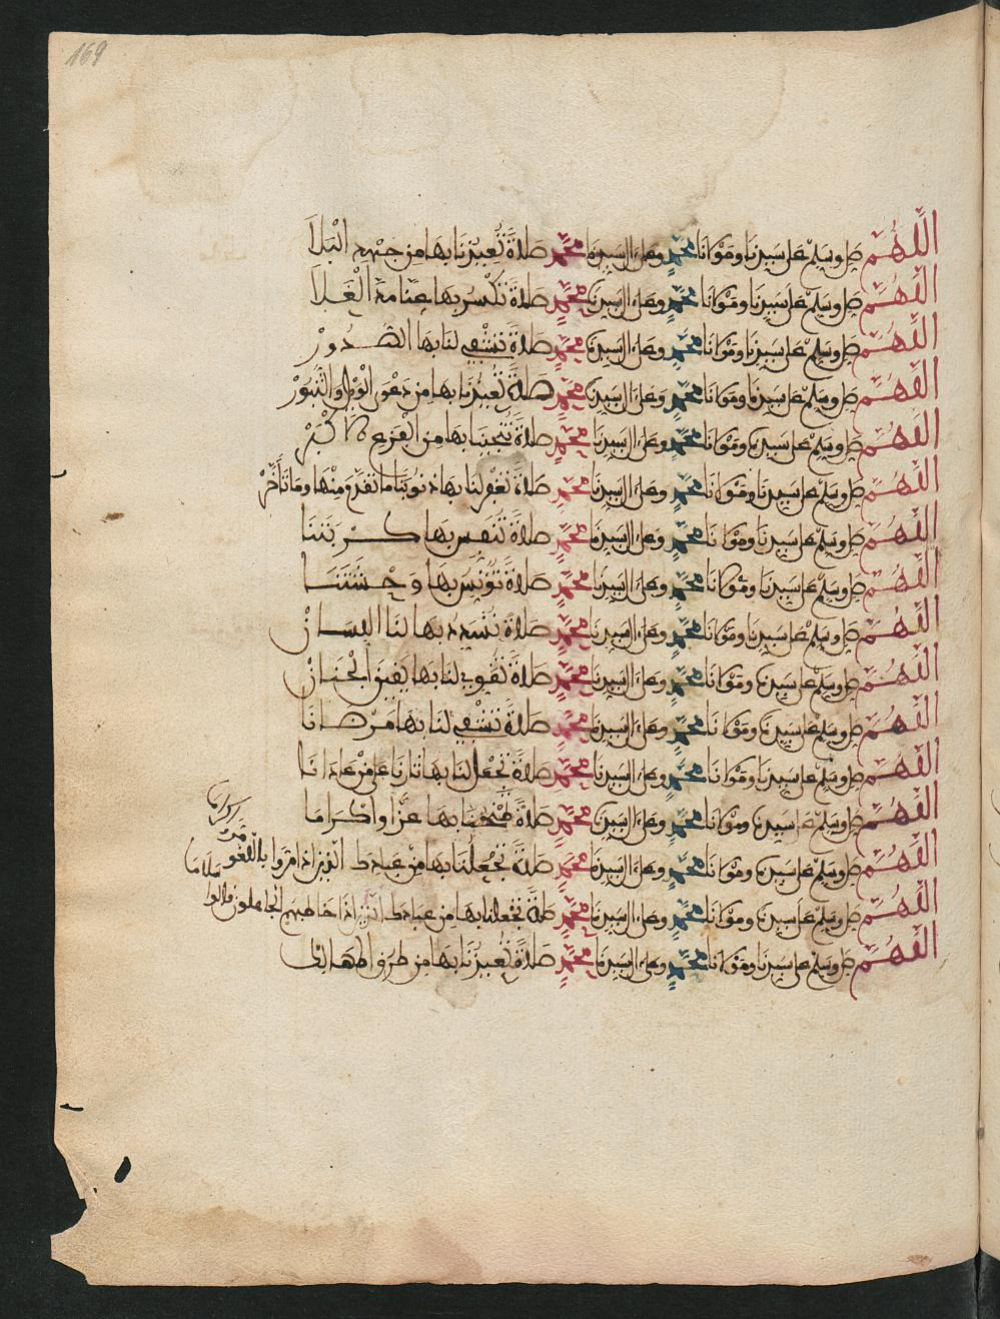 169
اللهم صل وسلم على سيدنا ومولانا محمد وعلى ءال سيدنا محمد صلاة تعيذنا بها من جهد البلا
اللهم صل وسلم على سيدنا ومولانا محمد وعلى ءال سيدنا محمد صلاة تكسر بها عنا مدا الغلا
اللهم صل وسلم على سيدنا ومولانا محمد وعلى ءال سيدنا محمد صلاة تشفي لنا بها الصدور
اللهم صل وسلم على سيدنا ومولانا محمد وعلى ءال سيدنا محمد صلاة تعيذنا بها من دعوى الويل والثبور
اللهم صل وسلم على سيدنا ومولانا محمد وعلى ءال سيدنا محمد صلاة تنجينا بها من الفزع الاكبر
اللهم صل وسلم على سيدنا ومولانا محمد وعلى ءال سيدنا محمد صلاة تغفر لنا بها ذنوبنا ما تقدم منها وما تأخر
اللهم صل وسلم على سيدنا ومولانا محمد وعلى ءال سيدنا محمد صلاة تنفس بها كربتنا
اللهم صل وسلم على سيدنا ومولانا محمد وعلى ءال سيدنا محمد صلاة تونس بها وحشتنا
اللهم صل وسلم على سيدنا ومولانا محمد وعلى ءال سيدنا محمد صلاة تسدد بها لنا اللسان
اللهم صل وسلم على سيدنا ومولانا محمد وعلى ءال سيدنا محمد صلاة تقوي لنا بها يقين الجنان
اللهم صل وسلم على سيدنا ومولانا محمد وعلى ءال سيدنا محمد صلاة تشفي لنا بها مرضانا
اللهم صل وسلم على سيدنا ومولانا محمد وعلى ءال سيدنا محمد صلاة تجعل لنا بها ثارنا على من عادانا
اللهم صل وسلم على سيدنا ومولانا محمد وعلى ءال سيدنا محمد صلاة بها عزا واكراما
اللهم صل وسلم على سيدنا ومولانا محمد وعلى ءال سيدنا محمد صلاة تجعلنا بها من عبادك الذين اذا مروا باللغو مروا كراما
اللهم صل وسلم على سيدنا ومولانا محمد وعلى ءال سيدنا محمد صلاة تجعلنا بها من عبادك الذين اذا خاطبهم الجاهلون قالوا سلاما
اللهم صل وسلم على سيدنا ومولانا محمد وعلى ءال سيدنا محمد صلاة تعيذنا بها من طرق